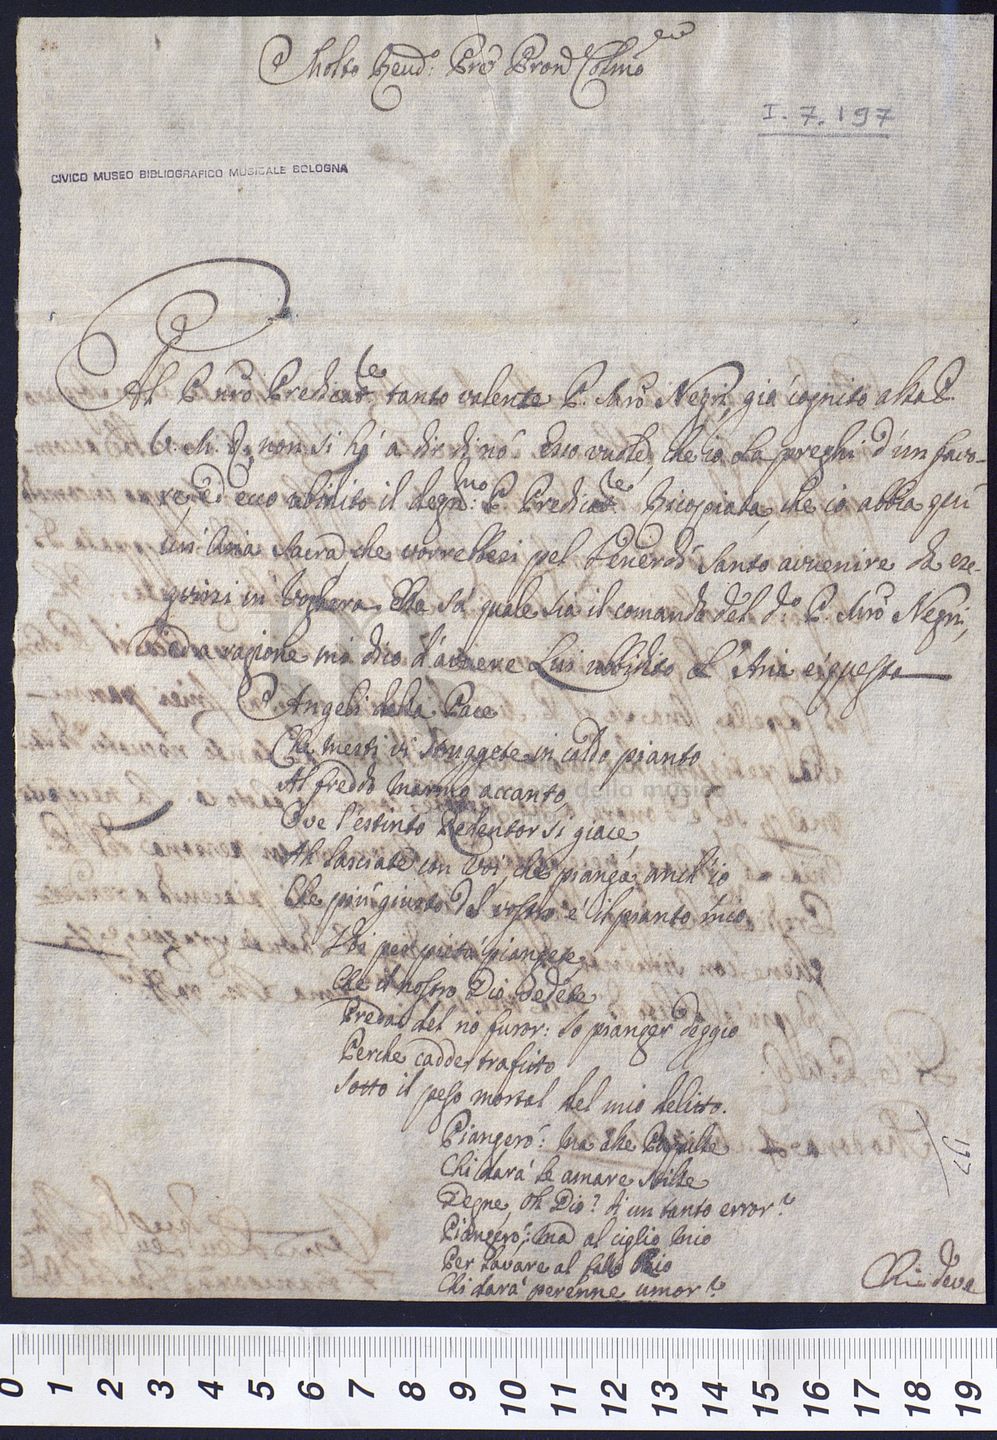 Molto Revd.o Pre Pron Colmo
I. 7. 197
CIVICO MUSEO BIBLIOGRAFICO MUSICALE BOLOGNA
Al P. nro Predicat.te tanto valente P. Mro Negri, già cognito alla P.
V. M. R. non si hà a dir di nò. Esso vuole, che io La preghi d'un favo-
re, ed ecco ubidito il degn.mo P. Predicat.te che io abbia quì
un'Aria Sacra, che vorrebbesi pel Venerdì Santo avvenire da ese-
guirsi in Voghera. Ella sà quale sia il comando del d.o P. Mro Negri,
ragione mi dico d'avere Lui ubbidito. L'Aria è questa
Angeli della Pace
Che mesti vi struggete in caldo pianto
Al freddo marmo accanto,
Ove l'estinto Redentor si giace,
Ah lasciate con voi, che pianga anch'io
Che più giusto del vostro è il pianto mio.
Voi per pietà piangete,
Che il nostro Dio vedete
Preda del rio furor: Io pianger deggio
Perche cadde trafitto
Sotto il peso mortal del mio delitto.
Piangerò: ma che Pupille
Chi darà le amare stille
Degne, oh Dio! di un tanto error?
Piangerò; ma al ciglio mio
Per lavare al fallo Rio
Chi darà perenne umor?
197
della musica
0 1 2 3 4 5 6 7 8 9 10 11 12 13 14 15 16 17 18 19